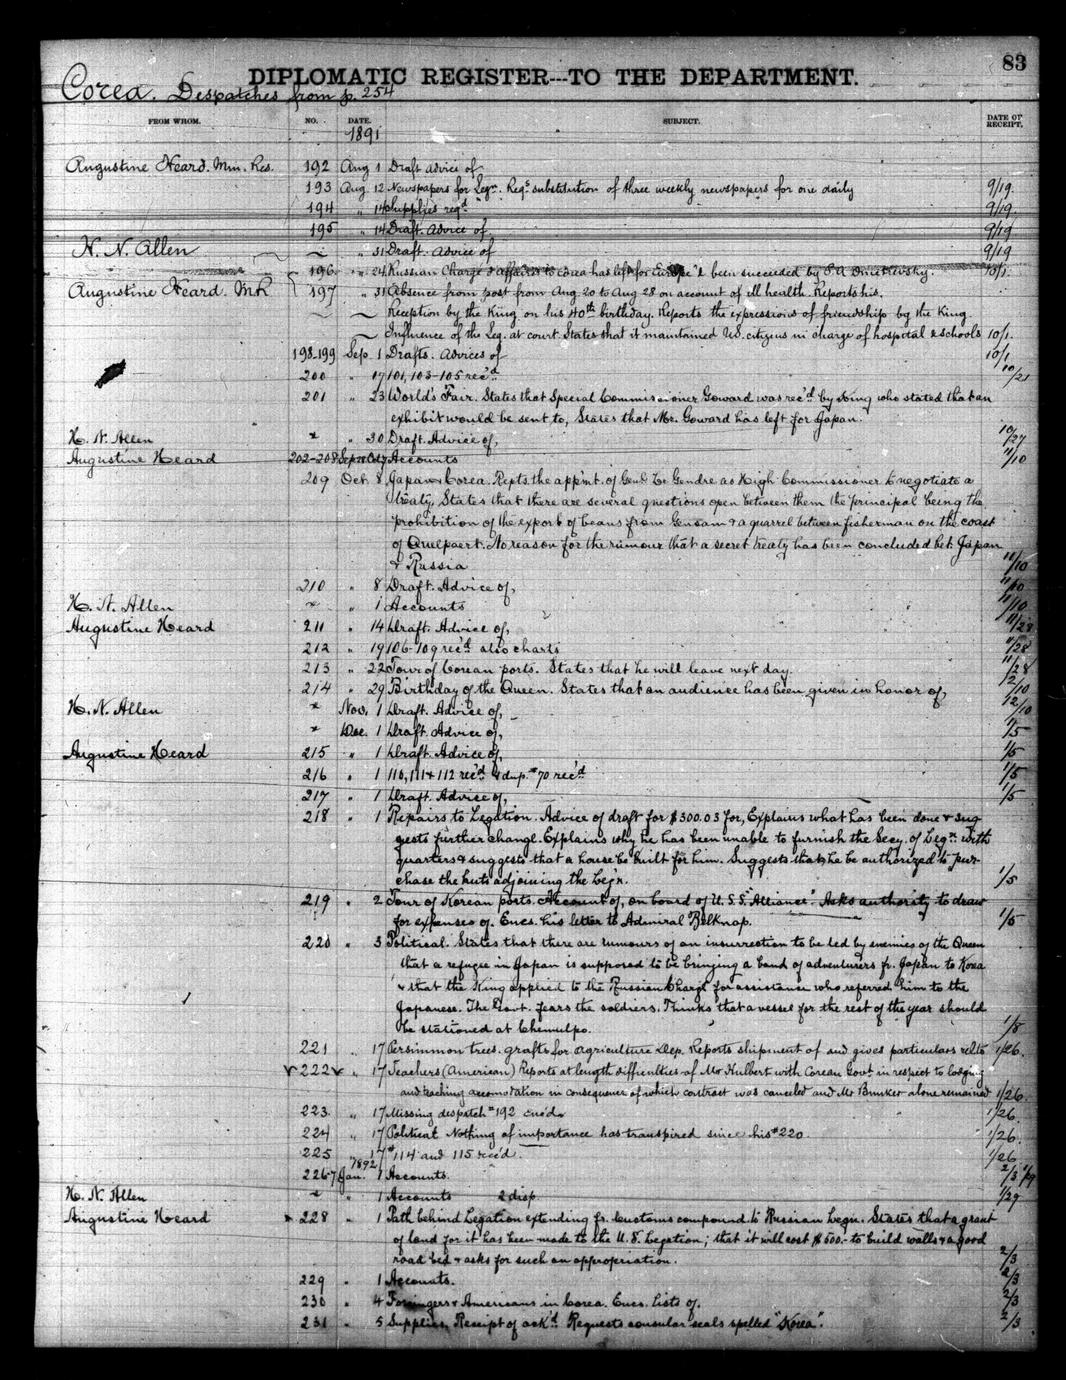 83
DIPLOMATIC REGISTER---TO THE DEPARTMENT.
Corea. Despatches from p. 254
FROM WHOM. NO. DATE. SUBJECT. DATE OF RECEIPT.
1891
Augustine Heard. Min. Res. 192 Aug 1 Draft advice of
193 Aug. 12 Newspapers for Legn. Reqs substitution of three weekly newspapers for one daily 9/19.
194 " 14 Supplies reqd 9/19.
195 " 14 Draft. Advice of 9/19
H. N. Allen ~ " 31 Draft. Advice of 9/19
196 " 24 Russian Chargé d'affaires to Corea has left for Europe & been succeeded by Dmitrevsky. 10/1.
Augustine Heard. MR 197 " 31 Absence from post from Aug. 20 to Aug 28 on account of ill health. Reports his.
~ Reception by the King on his 40th birthday. Reports the expressions of friendship by the King.
~ Influence of the Leg. at court. States that it maintained U.S. citizens in charge of hospital & schools 10/1.
198-199 Sep. 1 Drafts. Advices of 10/1
200 " 17 101, 103-105 rec'd 10/21
201 " 23 World's Fair. States that Special Commissioner Goward was rec'd by King who stated that an
exhibit would be sent to, States that Mr. Goward has left for Japan.
H. N. Allen " " 30 Draft. Advice of, 10/27
Augustine Heard 202-208 Accounts 11/10
209 Oct. 8 Japan & Corea. Repts. the appmt. of Genl. Le Gendre as High Commissioner to negotiate a
treaty. States that there are several questions open between them the principal being the
prohibition of the export of beans from Gensan & a quarrel between fisherman on the coast
of Quelpaert. No reason for the rumour that a secret treaty has been concluded bet. Japan
& Russia 11/10
210 " 8 Draft. Advice of, 11/10
H. N. Allen " " 1 Accounts 11/10
Augustine Heard 211 " 14 Draft. Advice of, 11/28
212 " 19 106-109 rec'd also charts 11/28
213 " 22 Tour of Corean ports. States that he will leave next day. 11/28
214 " 29 Birthday of the Queen. States that an audience has been given in honor of, 12/10
H. N. Allen " Nov. 1 Draft. Advice of, 12/10
" Dec. 1 Draft. Advice of, 1/5
Augustine Heard 215 " 1 Draft. Advice of, 1/5
216 " 1 110, 111 & 112 rec'd & dup. #70 rec'd 1/5
217 " 1 Draft. Advice of, 1/5
218 " 1 Repairs to Legation. Advice of draft for $300.03 for, Explains what has been done & sug
gests further change. Explains why he has been unable to furnish the Secy. of Legn. with
quarters & suggests that a house be built for him. Suggests that he be authorized to pur-
chase the huts adjoining the Legn. 1/5
219 " 2 Tour of Korean ports. Account of, on board of U.S.S. "Alliance". Asks authority to draw
for expenses of. Encs. his letter to Admiral Belknap. 1/5
220 " 3 Political. States that there are rumours of an insurrection to be led by enemies of the Queen
that a refugee in Japan is supposed to be bringing a band of adventurers fr. Japan to Korea
& that the King applied to the Russian Chargé for assistance who referred him to the
Japanese. The Govt. fears the soldiers. Thinks that a vessel for the rest of the year should
be stationed at Chemulpo. 1/8
221 " 17 Persimmon trees. grafts for agriculture Dep. Reports shipment of and gives particulars relto 1/26.
222 " 17 Teachers (American) Reports at length difficulties of Mr Hulbert with Corean Govt. in respect to lodging
and teaching accomodation in consequence of which contract was canceled and Mr Bunker alone remained 1/26.
223 " 17 Missing despatch #192 enc'd 1/26.
224 " 17 Political Nothing of importance has transpired since his #220. 1/26.
225 " 17 #114 and 115 rec'd. 1/26
1892
226-7 Jan. 1 Accounts. 2/3 1/29
H. N. Allen " " 1 Accounts 2 disp. 1/29
Augustine Heard 228 " 1 Path behind Legation extending fr. Customs compound to Russian Legn. States that a grant
of land for it has been made to the U.S. Legation; that it will cost $500.- to build walls & a good
road bed & asks for such an appropriation. 2/3
229 " 1 Accounts. 2/3
230 " 4 Foreigners & Americans in Corea. Encs. lists of. 2/3
231 " 5 Supplies, Receipt of ack'd. Requests consular seals spelled "Korea". 2/3